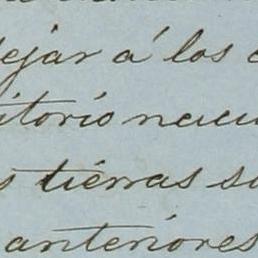 dejar á los
itorio nacio
s tierras s
anteriores